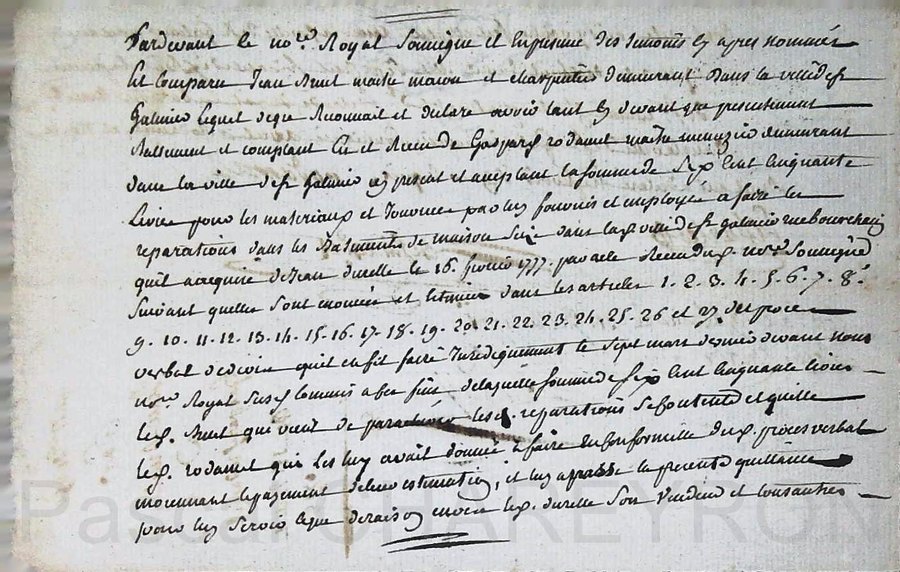 Pardevant le no.re Royal Soussigné et en presence des temoins cy apres nommés
Est comparu Jean Brut maitre masson et charpentier demeurant dans la ville de St
Galmier lequel de gré Reconnait et declare avoir tant cy devant que presentement
Reellement et comptant Eu et Receu de Gaspard rodamet maitre menuzier demeurant
dans la ville de St Galmier cy present et acceptant la somme de Six Cent Cinquante
Livres pour les materiaux et Journées par luy fournis et employés a faire les
reparations dans les Batiments de maison Size dans lad. ville de St galmier rue
qu'il a acquise de Jean durelle le 16 fevrier 1777. par acte Receu dud. no.re Soussigné
Suivant quelles sont enoncées et Estimées dans les articles 1. 2. 3. 4. 5. 6. 7. 8.
9. 10. 11. 12. 13. 14. 15. 16. 17. 18. 19. 20. 21. 22. 23. 24. 25. 26 et 27 du proces
verbal qu'il en fit faire Juridiquement le Sept mars dernier devant nous
no.re Royal Susd. Commis a ces fins de laquelle somme de Six Cent Cinquante livres
led. Brut qui vient de parachever lesd. reparations Se contente et quitte
led. rodamet qui les luy avait donnée a faire en Conformité dud. proces verbal
moyennant le payement de leur estimation, et luy a passé la presente quittance
pour luy Servir ce que de raison envers led. durelle Son Vendeur et tous autres
Pascal CHAREYRON